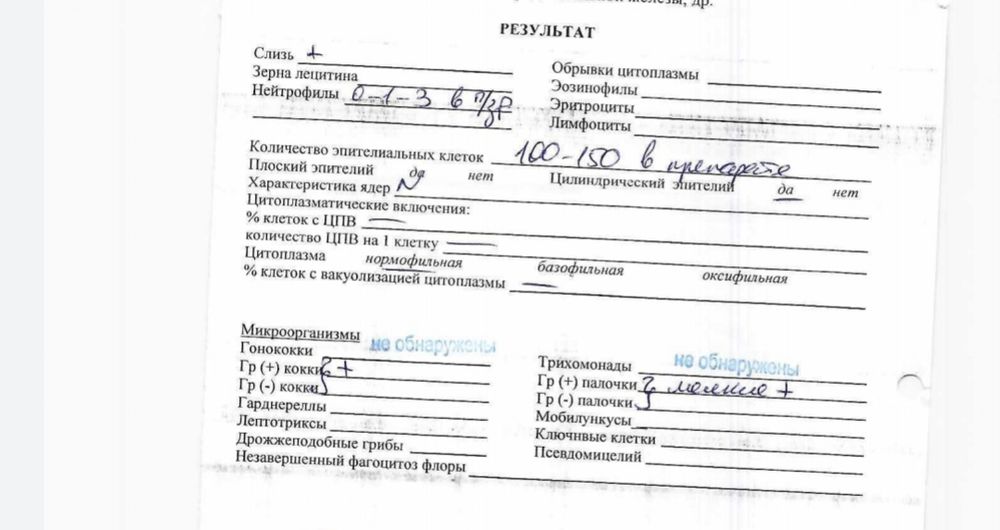 железы, др.
РЕЗУЛЬТАТ
Слизь +
Зерна лецитина
Нейтрофилы 0-1-3 в п/зр
Обрывки цитоплазмы
Эозинофилы
Эритроциты
Лимфоциты
Количество эпителиальных клеток 100-150 в препарате
Плоский эпителий да нет Цилиндрический эпителий да нет
Характеристика ядер N
Цитоплазматические включения:
% клеток с ЦПВ —
количество ЦПВ на 1 клетку —
Цитоплазма нормофильная базофильная оксифильная
% клеток с вакуолизацией цитоплазмы —
Микроорганизмы
Гонококки не обнаружены
Гр (+) кокки +
Гр (-) кокки
Гарднереллы
Лептотриксы
Дрожжеподобные грибы
Незавершенный фагоцитоз флоры
Трихомонады не обнаружены
Гр (+) палочки мелкие +
Гр (-) палочки
Мобилункусы
Ключнвые клетки
Псевдомицелий